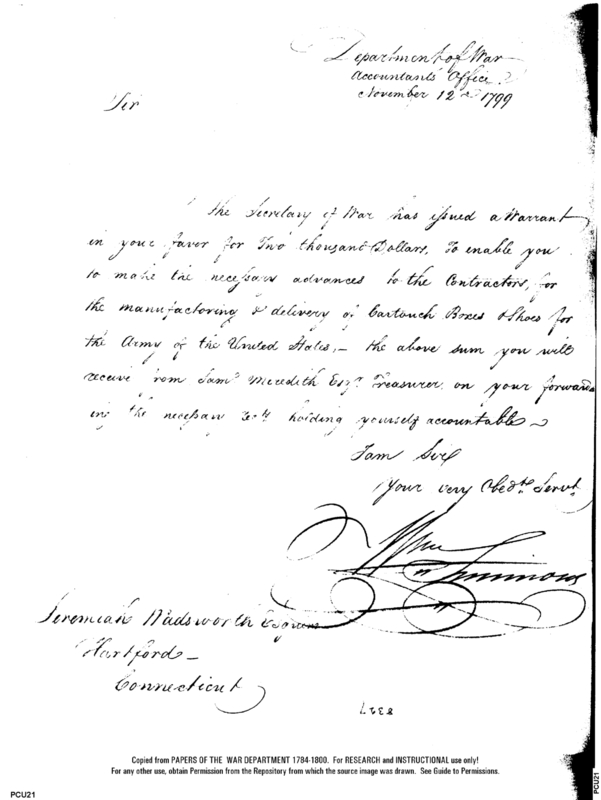 Department of War
Accountants Office
November 12th 1799
Sir
The Secretary of War has issued a Warrant
in your favor for Two thousand Dollars, To enable you
to make the necessary advances to the Contractors, for
the manufactoring & delivery of Cartouch Boxes & Shoes for
the Army of the United States,— the above sum you will
receive from Saml. Meredith Esqr. Treasurer on your forward
ing the necessary holding yourself accountable—
I am Sir
Your very Obedt. Servt.
Wm Simmons
Jeremiah Wadsworth Esquire
Hartford—
Connecticut
Copied from PAPERS OF THE WAR DEPARTMENT 1784-1800. For RESEARCH and INSTRUCTIONAL use only!
For any other use, obtain Permission from the Repository from which the source image was drawn. See Guide to Permissions.
PCU21
PCU21